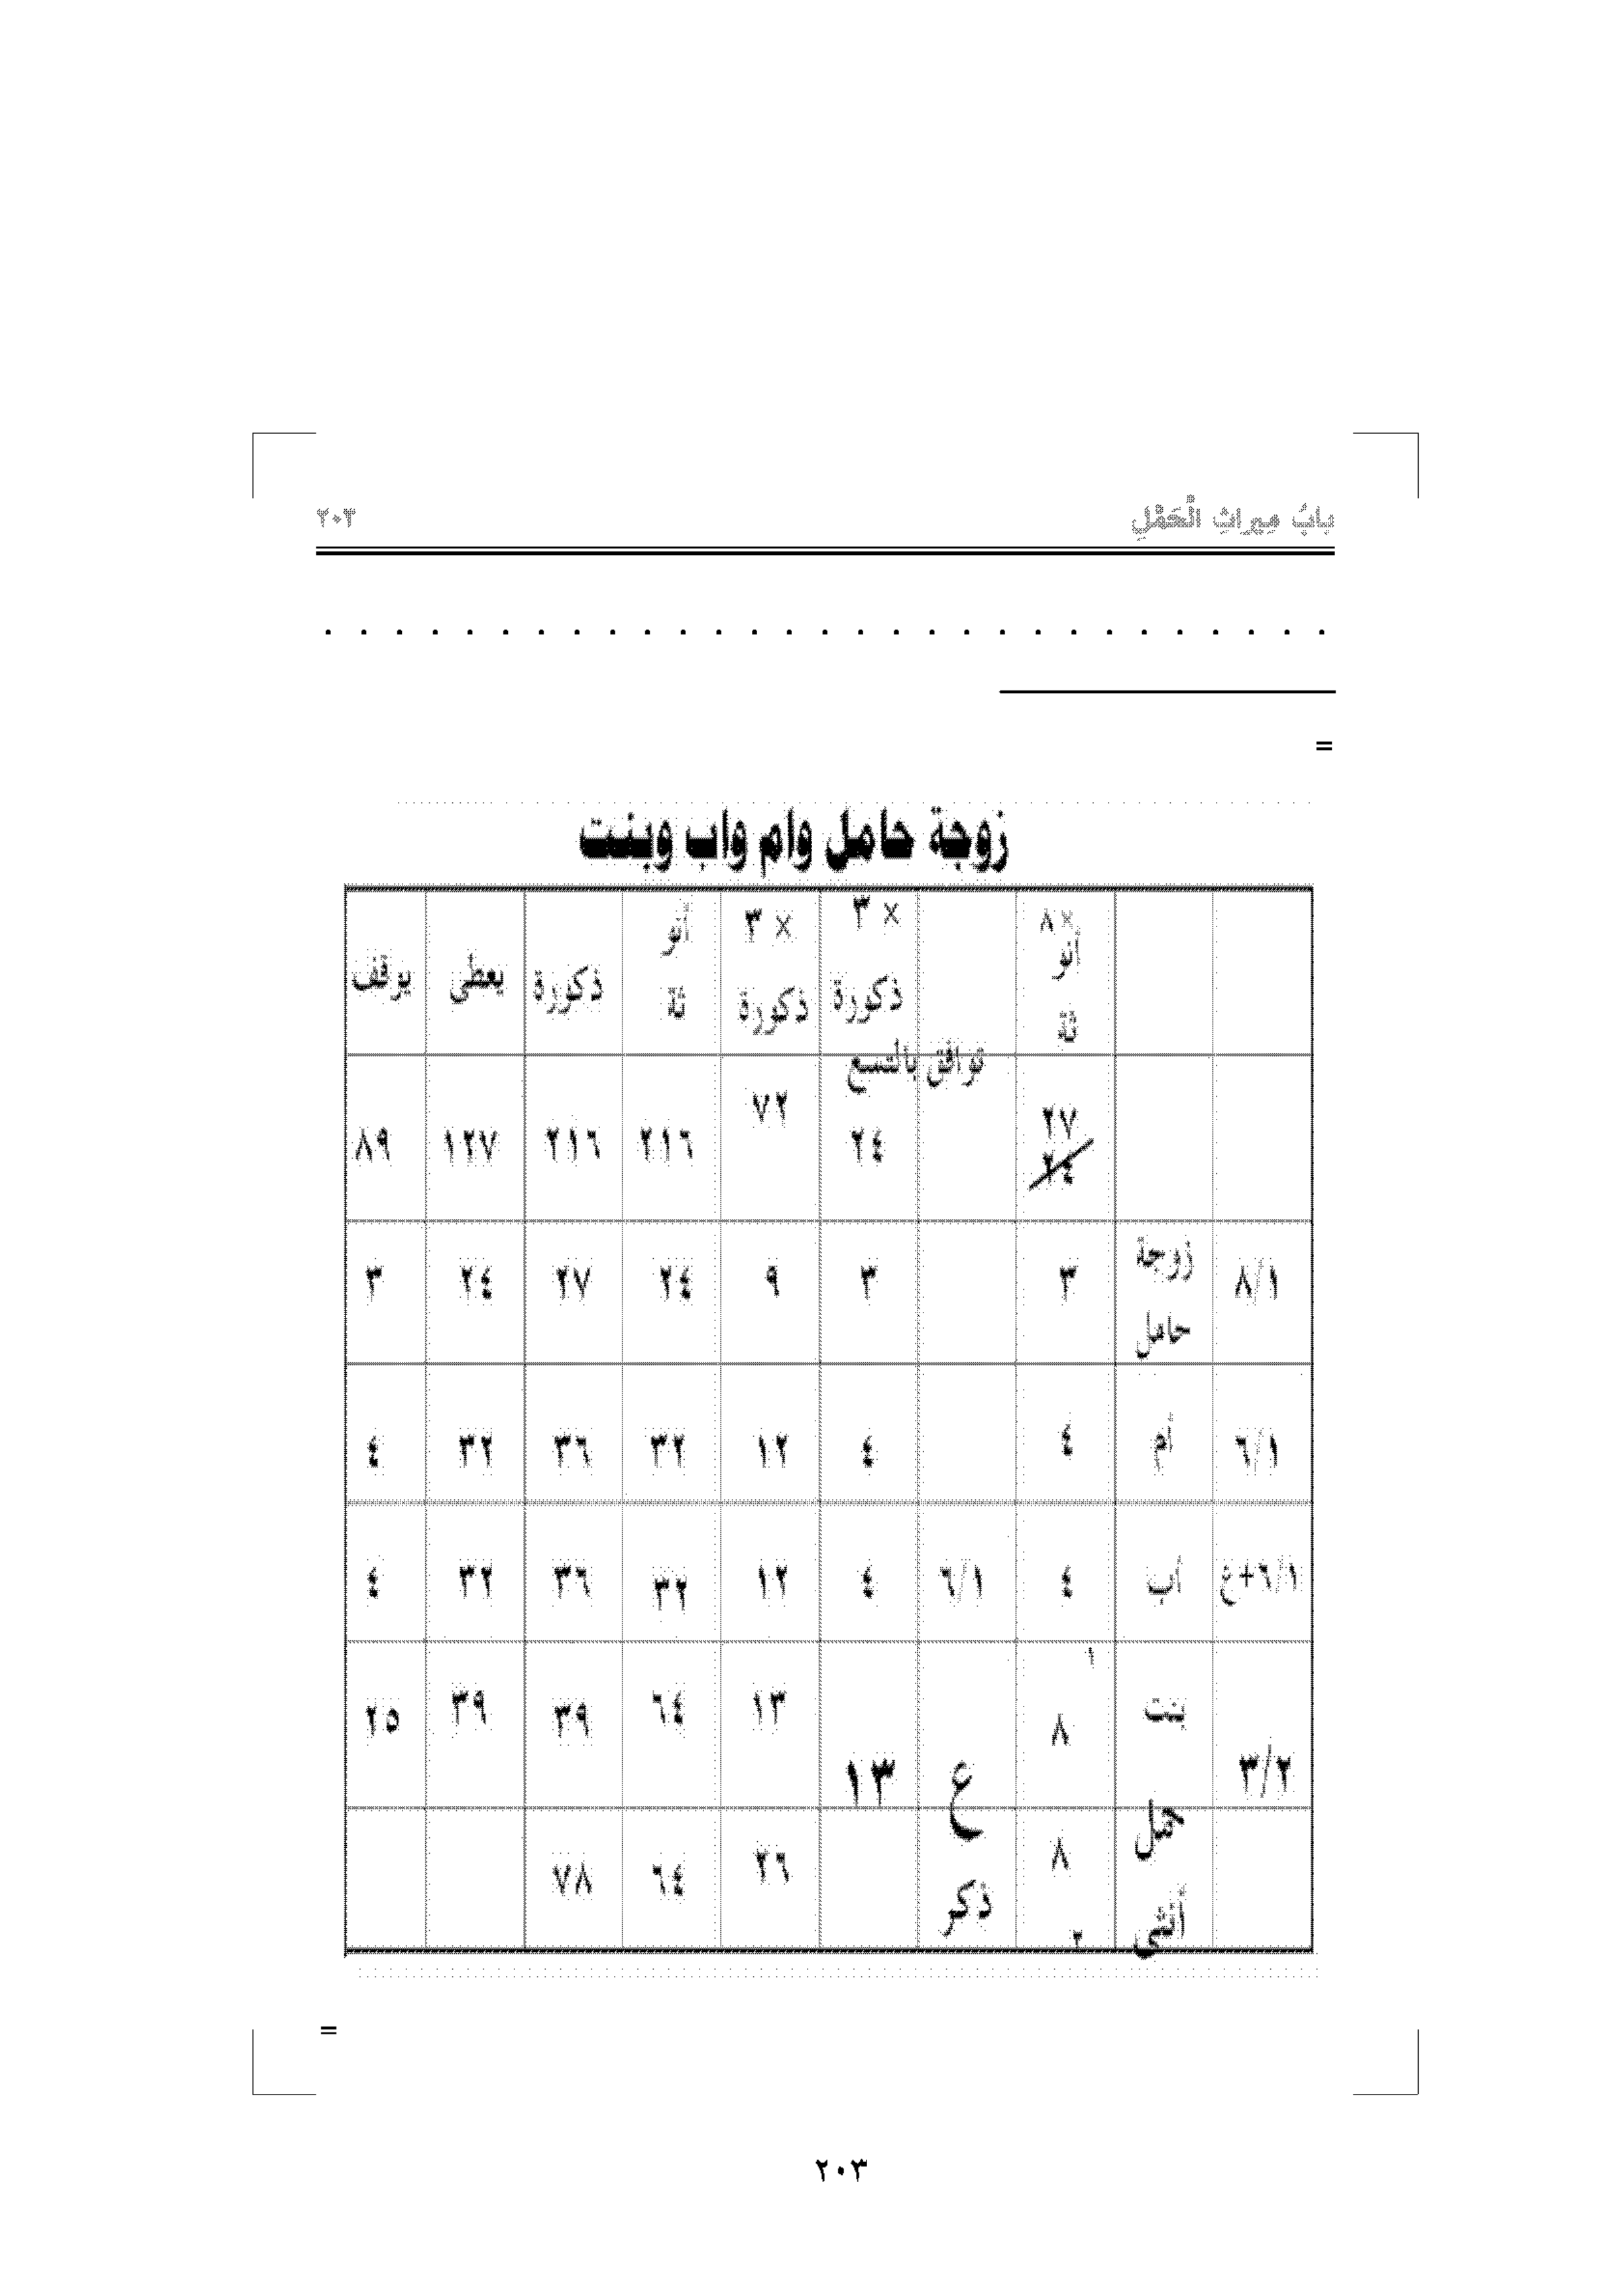 بابُ مِيراثِ الْحَمْلِ ٢٠٣
. . . . . . . . . . . . . . . . . . . . . . . . . . . . .
=
زوجة حامل وام واب وبنت
× ٨ أنو ثة × ٣ ذكورة × ٣ ذكورة أنو ثة ذكورة يعطى يوقف
توافق بالتسع
٢٧ ٢٤ ٢٤ ٧٢ ٢١٦ ٢١٦ ١٢٧ ٨٩
٨/١ زوجة حامل ٣ ٣ ٩ ٢٤ ٢٧ ٢٤ ٣
٦/١ أم ٤ ٤ ١٢ ٣٢ ٣٦ ٣٢ ٤
٦/١+ع أب ٤ ٦/١ ٤ ١٢ ٣٢ ٣٦ ٣٢ ٤
٣/٢ بنت ١ ٨ ع ١٣ ١٣ ٦٤ ٣٩ ٣٩ ٢٥
حمل أنثى ٨ ٢ ذكر ٢٦ ٦٤ ٧٨
=
٢٠٣